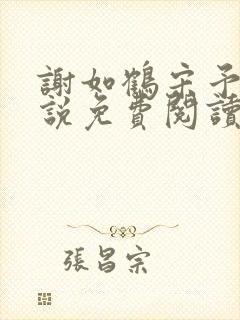 謝如鶴宋予
說免費閱讀
張昌宗